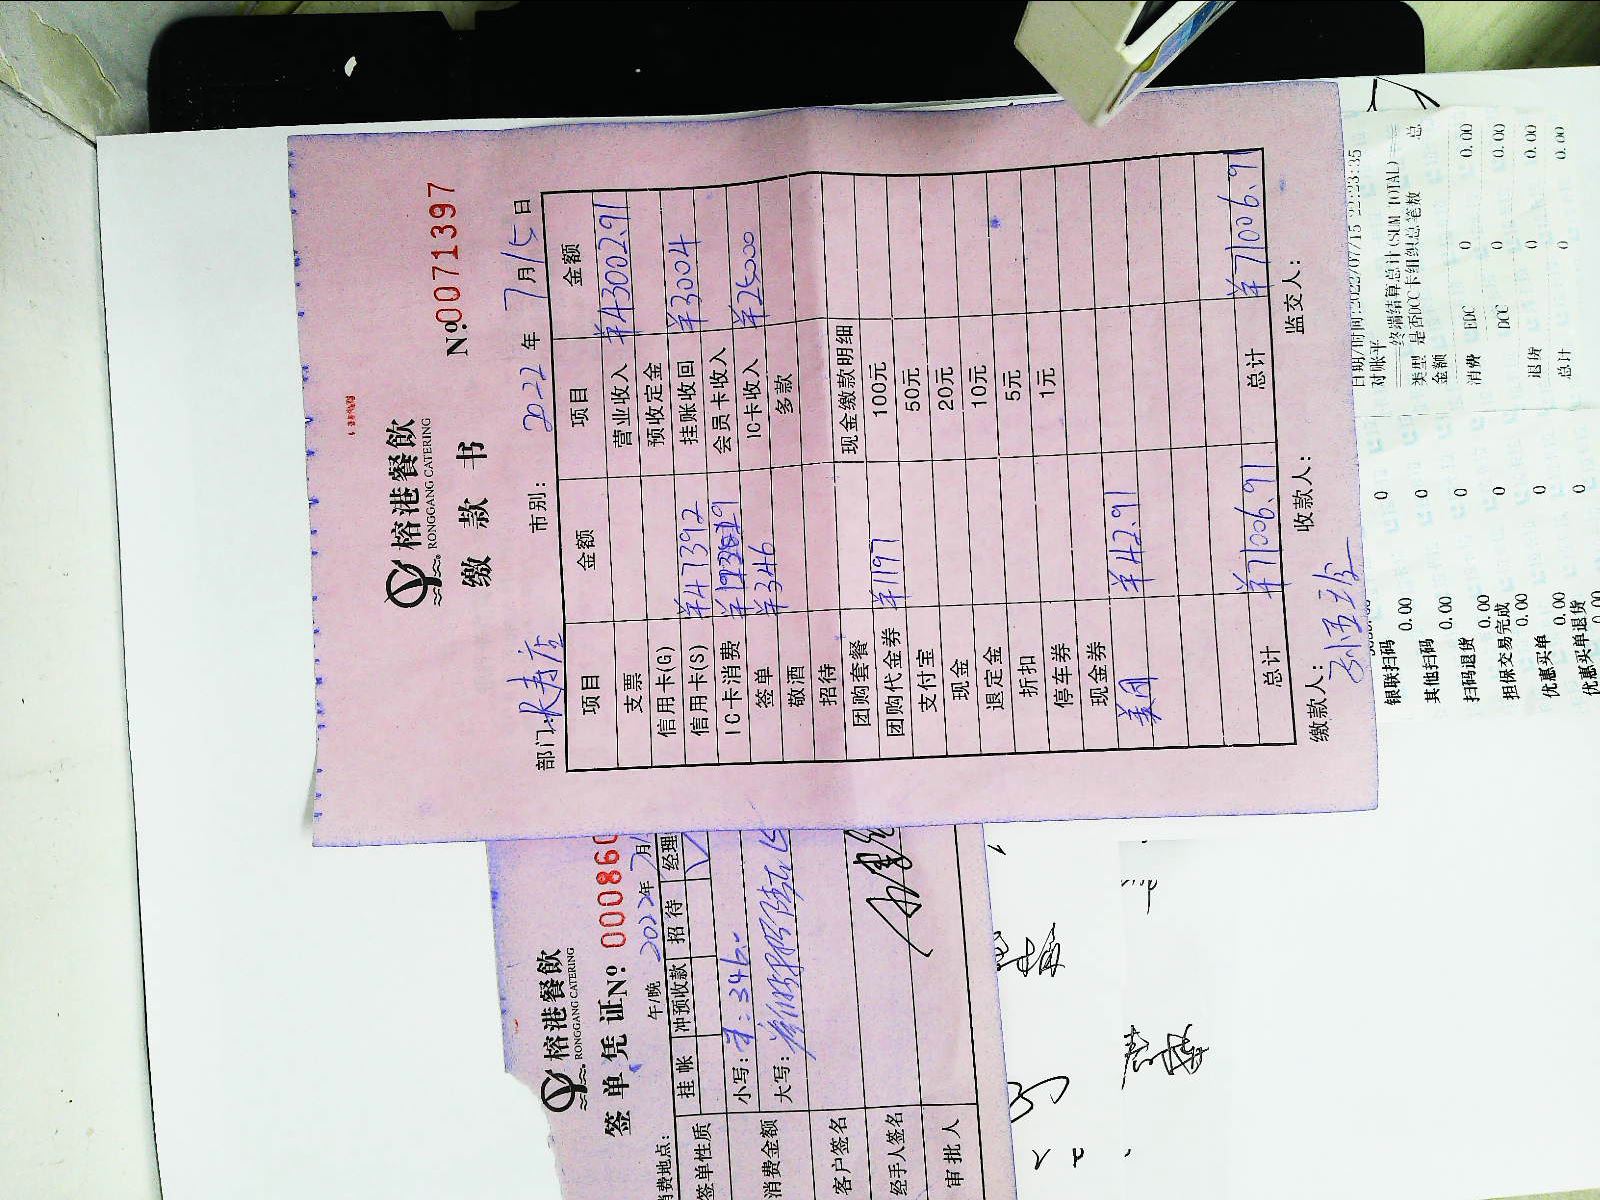 榕港餐飲
RONGGANG CATERING
缴款书
№:0071397
部门:长寿店 市别: 2022年7月15日
项目 金额 项目 金额
支票 营业收入 ¥43002.91
信用卡(G) 预收定金
信用卡(S) ¥47392 挂账收回 ¥3004
IC卡消费 会员卡收入
签单 ¥346 IC卡收入 ¥25000
敬酒 多款
招待
团购套餐 现金缴款明细
团购代金券 ¥1197 100元
支付宝 50元
现金 20元
退定金 10元
折扣 5元
停车券 1元
现金券
美团 ¥42.91
总计 ¥71006.91 总计 ¥71006.91
缴款人: 收款人: 监交人:
榕港餐飲
RONGGANG CATERING
签单凭证 № 000860
费地点: 午/晚 2022年7月
签单性质 挂帐 冲预收款 招待 经理
消费金额 小写:¥:346.
大写:
客户签名
经手人签名
审批人
日期/时间:2022/07/15 22:23:35
对账平
终端结算总计(SUM TOTAL)
类型 是否DCC卡组织总笔数 总
金额
消费 EDC 0 0.00
DCC 0 0.00
退货 0 0.00
总计 0 0.00
银联扫码 0
0.00
其他扫码 0
0.00
扫码退货 0
0.00
担保交易完成 0
0.00
优惠买单 0
0.00
优惠买单退货 0
0.00